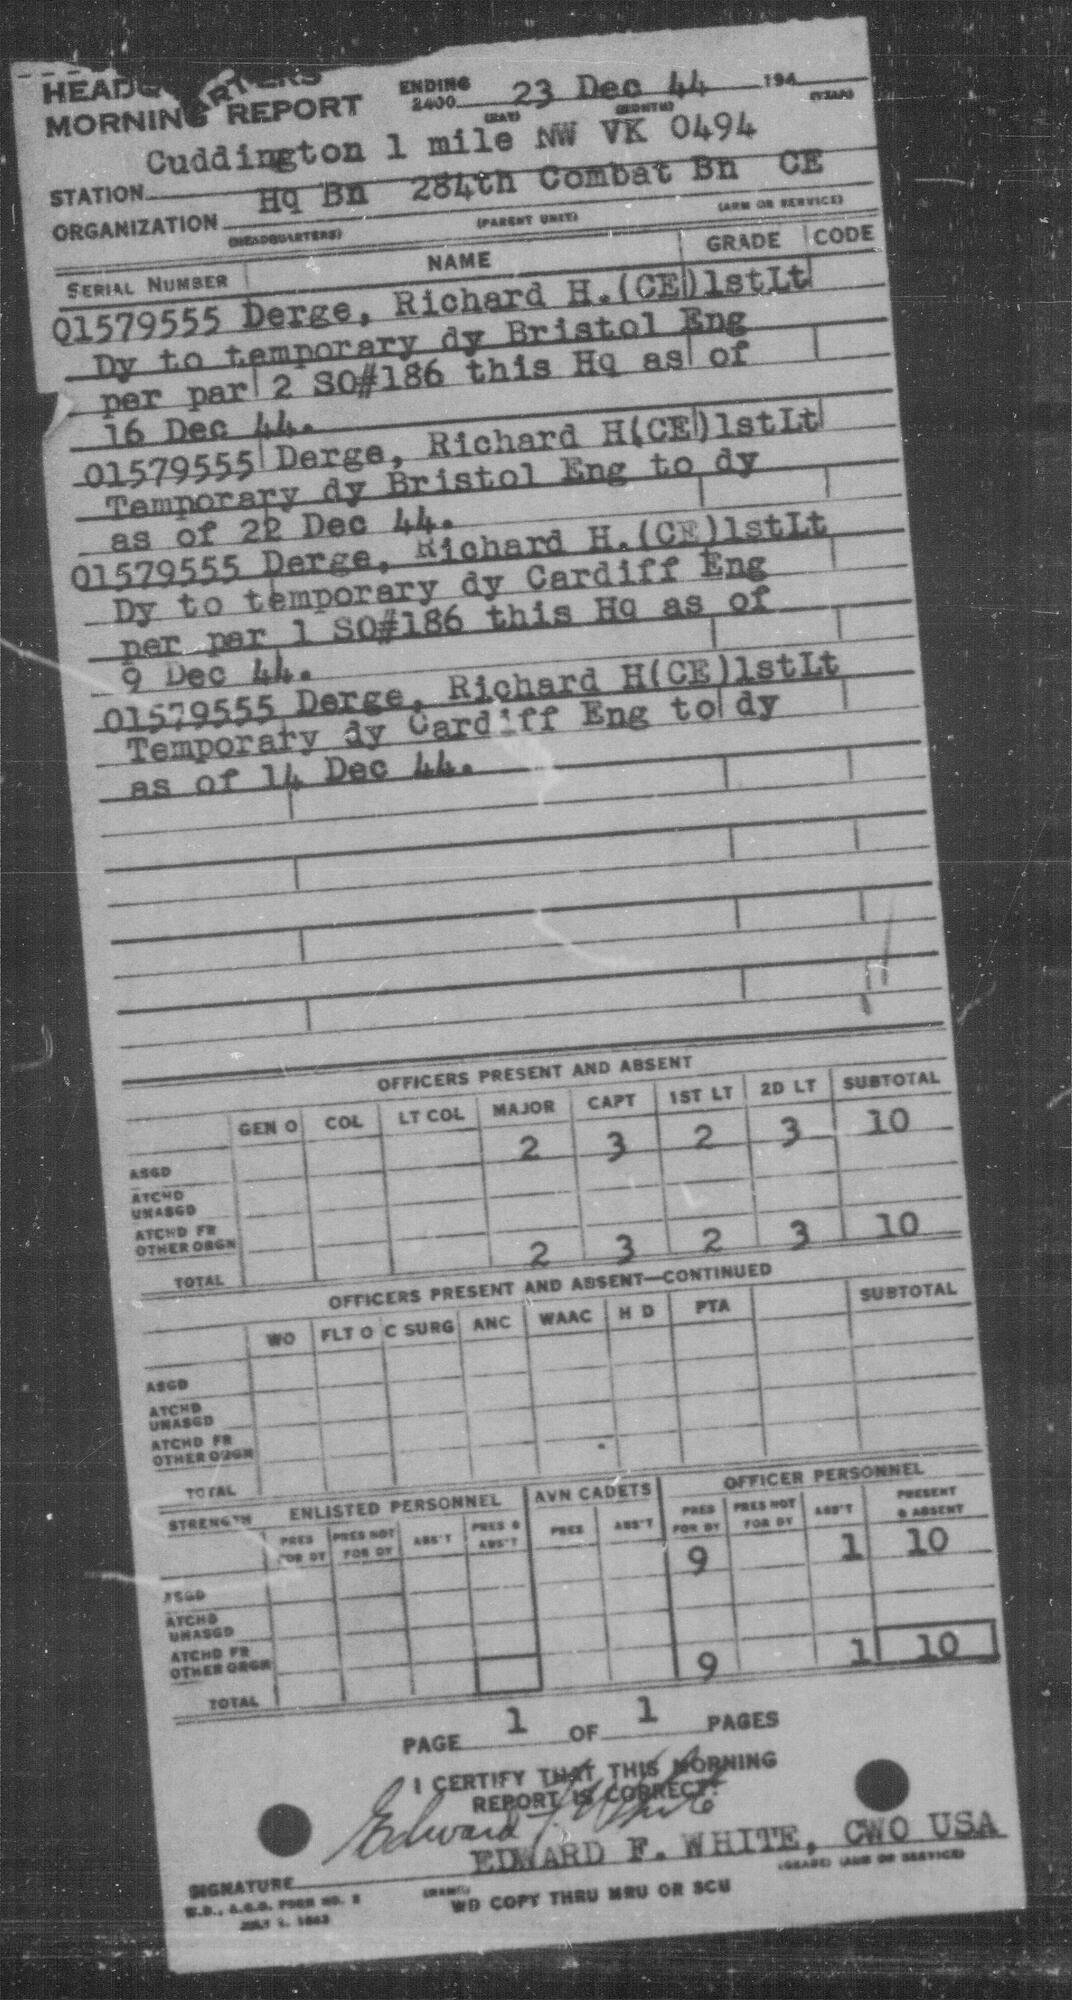 HEADQUARTERS
MORNING REPORT
ENDING 2400 23 Dec 44 194
(DAY) (MONTH) (YEAR)
Cuddington 1 mile NW VK 0494
STATION
Hq Bn 284th Combat Bn CE
ORGANIZATION
(HEADQUARTERS) (PARENT UNIT) (ARM OR SERVICE)
SERIAL NUMBER NAME GRADE CODE
O1579555 Derge, Richard H.(CE)1stLt
Dy to temporary dy Bristol Eng
per par 2 SO#186 this Hq as of
16 Dec 44.
O1579555 Derge, Richard H(CE)1stLt
Temporary dy Bristol Eng to dy
as of 22 Dec 44.
O1579555 Derge, Richard H.(CE)1stLt
Dy to temporary dy Cardiff Eng
per par 1 SO#186 this Hq as of
9 Dec 44.
O1579555 Derge, Richard H(CE)1stLt
Temporary dy Cardiff Eng to dy
as of 14 Dec 44.
OFFICERS PRESENT AND ABSENT
GEN O COL LT COL MAJOR CAPT 1ST LT 2D LT SUBTOTAL
ASGD 2 3 2 3 10
ATCHD UNASGD
ATCHD FR OTHER ORGN
TOTAL 2 3 2 3 10
OFFICERS PRESENT AND ABSENT—CONTINUED
WO FLT O C SURG ANC WAAC H D PTA SUBTOTAL
ASGD
ATCHD UNASGD
ATCHD FR OTHER ORGN
TOTAL
STRENGTH ENLISTED PERSONNEL AVN CADETS OFFICER PERSONNEL
PRES FOR DY PRES NOT FOR DY ABS'T PRES & ABS'T PRES ABS'T PRES FOR DY PRES NOT FOR DY ABS'T PRESENT & ABSENT
ASGD 9 1 10
ATCHD UNASGD
ATCHD FR OTHER ORGN
TOTAL 9 1 10
PAGE 1 OF 1 PAGES
I CERTIFY THAT THIS MORNING
REPORT IS CORRECT:
Edward F. White
EDWARD F. WHITE, CWO USA
SIGNATURE
(NAME) (GRADE) (ARM OR SERVICE)
W.D., A.G.O. FORM NO. WD COPY THRU MRU OR SCU
JULY 1943